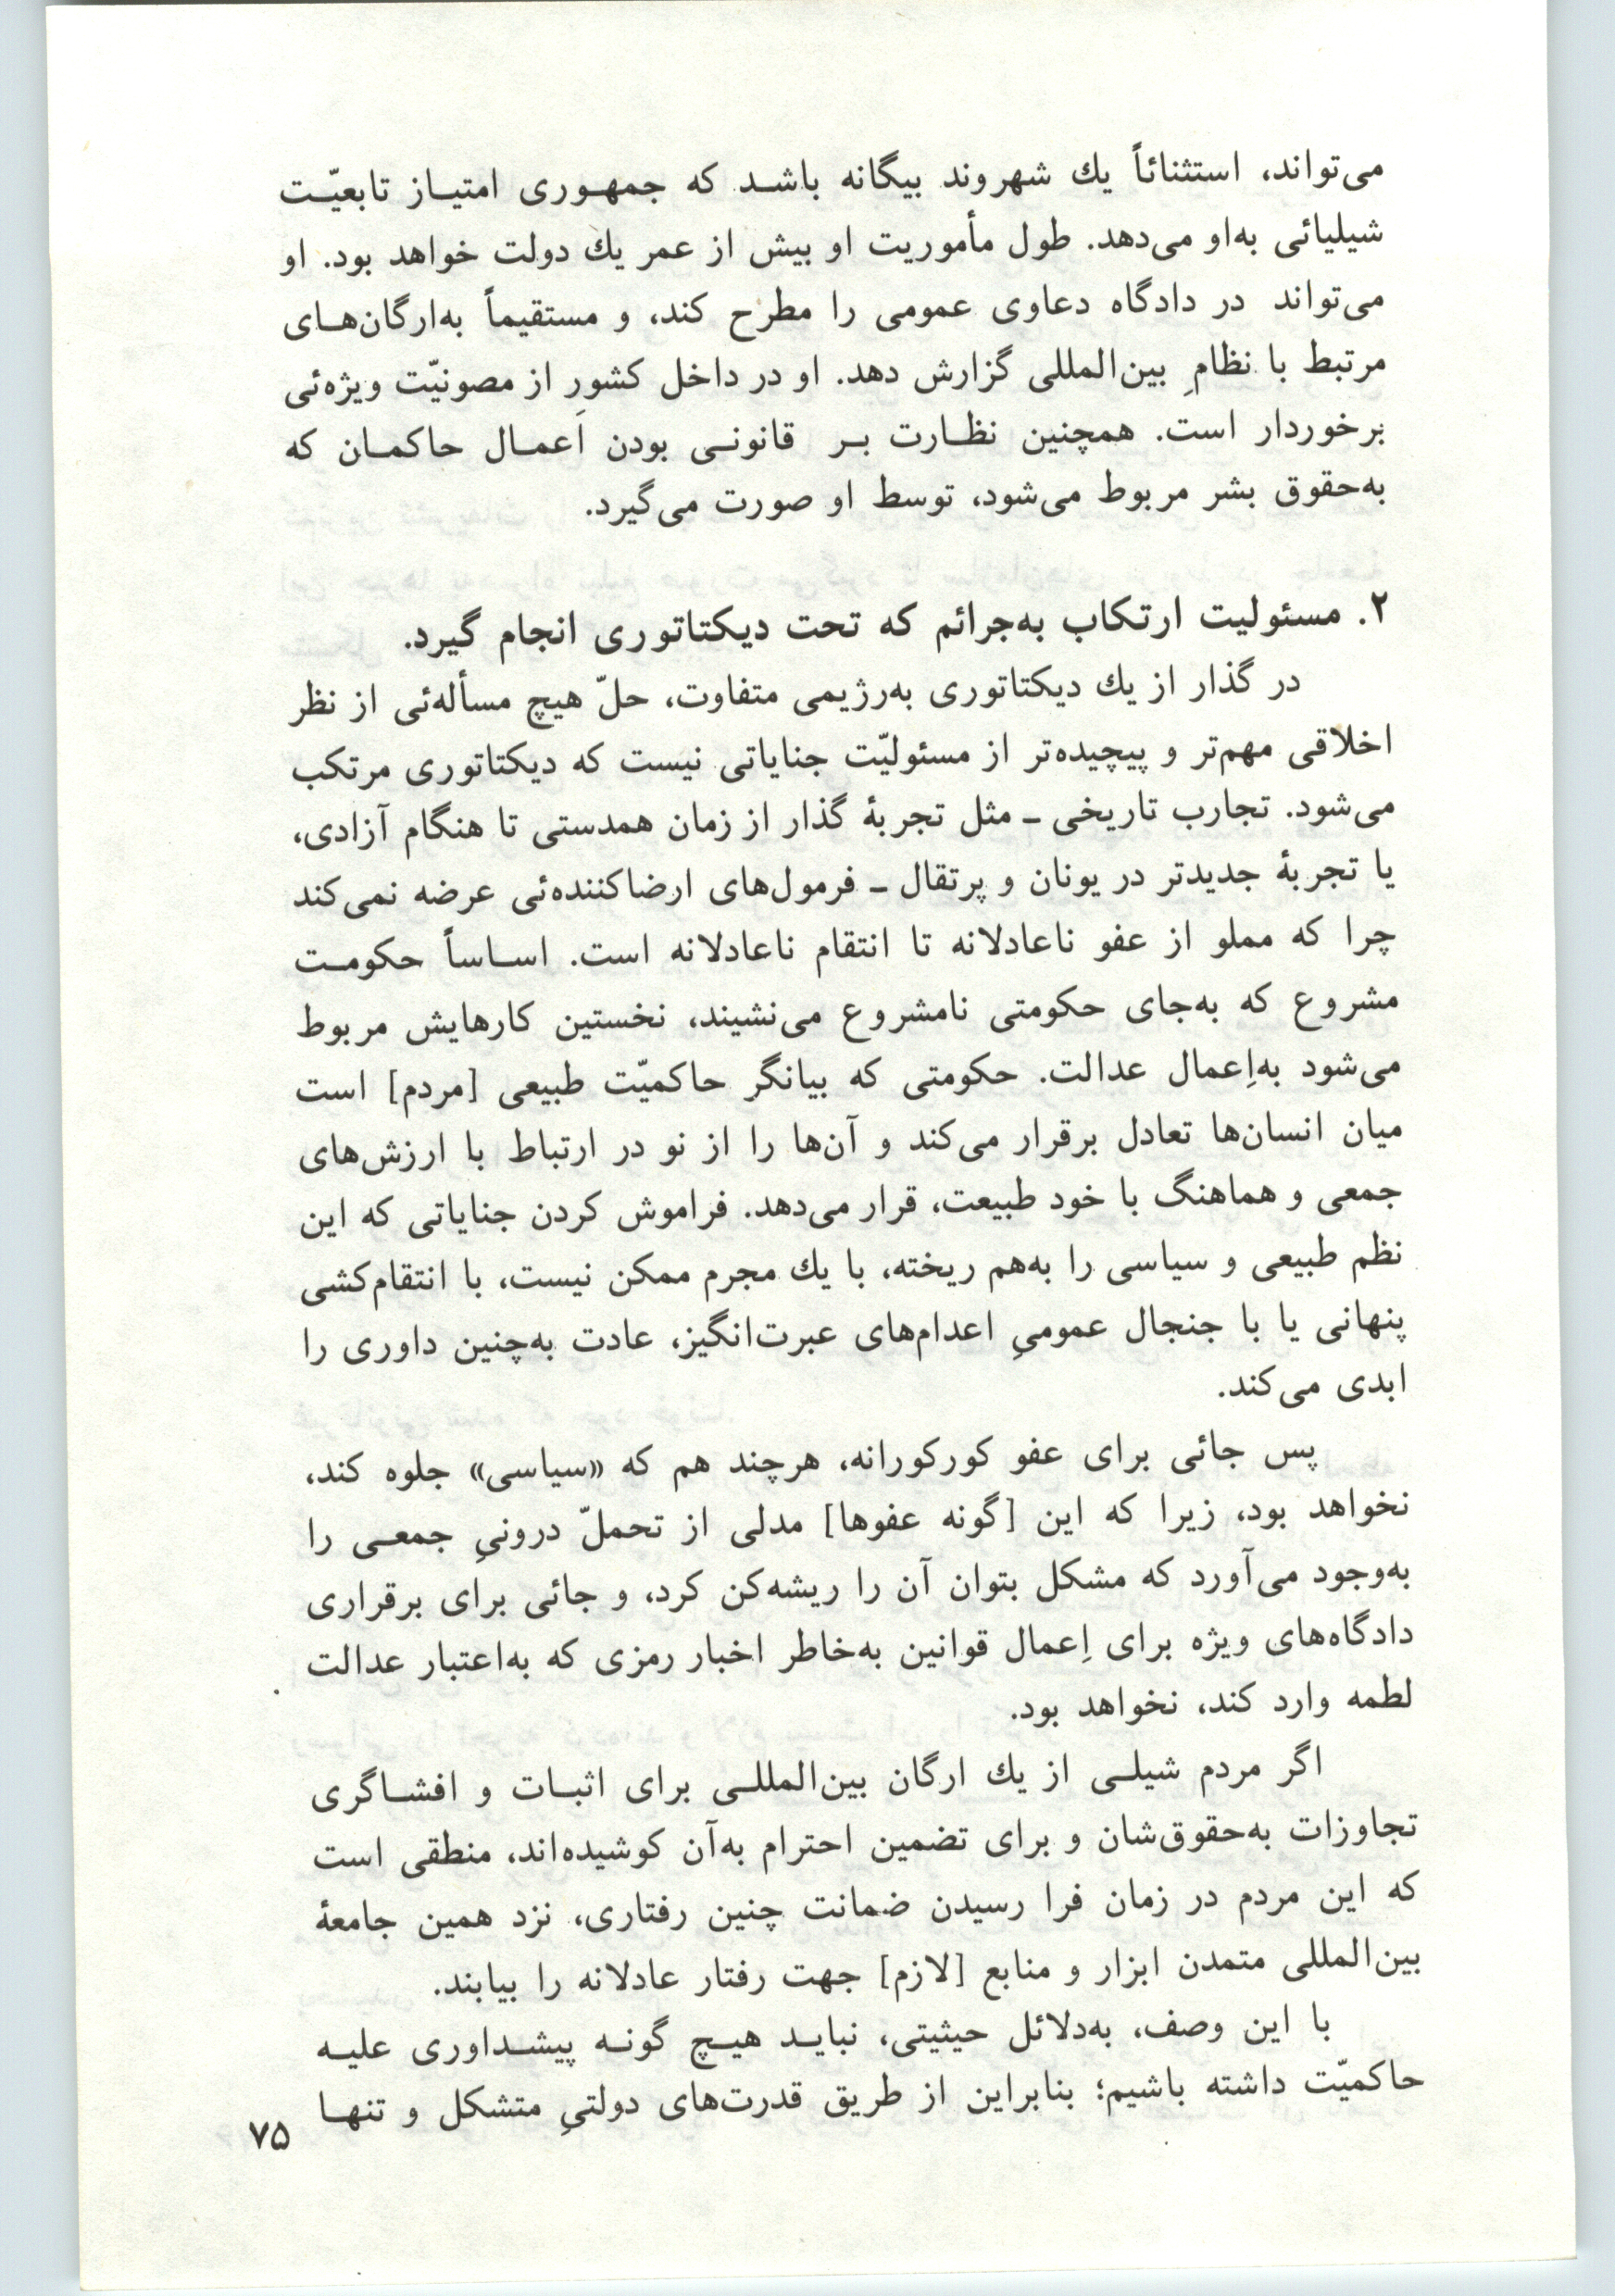 می‌تواند، استثنائاً یك شهروند بیگانه باشـد که جمهـوری امتیـاز تابعیّـت
شیلیائی به‌او می‌دهد. طول مأموریت او بیش از عمر یك دولت خواهد بود. او
می‌تواند در دادگاه دعاوی عمومی را مطرح کند، و مستقیماً به‌ارگان‌هـای
مرتبط با نظامِ بین‌المللی گزارش دهد. او در داخل کشور از مصونیّت ویژه‌ئی
برخوردار است. همچنین نظـارت بـر قانونـی بودن اَعمـال حاکمـان که
به‌حقوق بشر مربوط می‌شود، توسط او صورت می‌گیرد.
۲. مسئولیت ارتکاب به‌جرائم که تحت دیکتاتوری انجام گیرد.
در گذار از یك دیکتاتوری به‌رژیمی متفاوت، حلّ هیچ مسأله‌ئی از نظر
اخلاقی مهم‌تر و پیچیده‌تر از مسئولیّت جنایاتی نیست که دیکتاتوری مرتکب
می‌شود. تجارب تاریخی ـ مثل تجربهٔ گذار از زمان همدستی تا هنگام آزادی،
یا تجربهٔ جدیدتر در یونان و پرتقال ـ فرمول‌های ارضاکننده‌ئی عرضه نمی‌کند
چرا که مملو از عفو ناعادلانه تا انتقام ناعادلانه است. اسـاساً حکومـت
مشروع که به‌جای حکومتی نامشروع می‌نشیند، نخستین کارهایش مربوط
می‌شود به‌اِعمال عدالت. حکومتی که بیانگر حاکمیّت طبیعی [مردم] است
میان انسان‌ها تعادل برقرار می‌کند و آن‌ها را از نو در ارتباط با ارزش‌های
جمعی و هماهنگ با خود طبیعت، قرار می‌دهد. فراموش کردن جنایاتی که این
نظم طبیعی و سیاسی را به‌هم ریخته، با یك مجرم ممکن نیست، با انتقام‌کشی
پنهانی یا با جنجال عمومیِ اعدام‌های عبرت‌انگیز، عادت به‌چنین داوری را
ابدی می‌کند.
پس جائی برای عفو کورکورانه، هرچند هم که «سیاسی» جلوه کند،
نخواهد بود، زیرا که این [گونه عفوها] مدلی از تحملّ درونیِ جمعـی را
به‌وجود می‌آورد که مشکل بتوان آن را ریشه‌کن کرد، و جائی برای برقراری
دادگاه‌های ویژه برای اِعمال قوانین به‌خاطر اخبار رمزی که به‌اعتبار عدالت
لطمه وارد کند، نخواهد بود.
اگر مردم شیلـی از یك ارگان بین‌المللـی برای اثبـات و افشـاگری
تجاوزات به‌حقوق‌شان و برای تضمین احترام به‌آن کوشیده‌اند، منطقی است
که این مردم در زمان فرا رسیدن ضمانت چنین رفتاری، نزد همین جامعهٔ
بین‌المللی متمدن ابزار و منابع [لازم] جهت رفتار عادلانه را بیابند.
با این وصف، به‌دلائل حیثیتی، نبایـد هیـچ گونـه پیشـداوری علیـه
حاکمیّت داشته باشیم؛ بنابراین از طریق قدرت‌های دولتیِ متشکل و تنهـا
۷۵